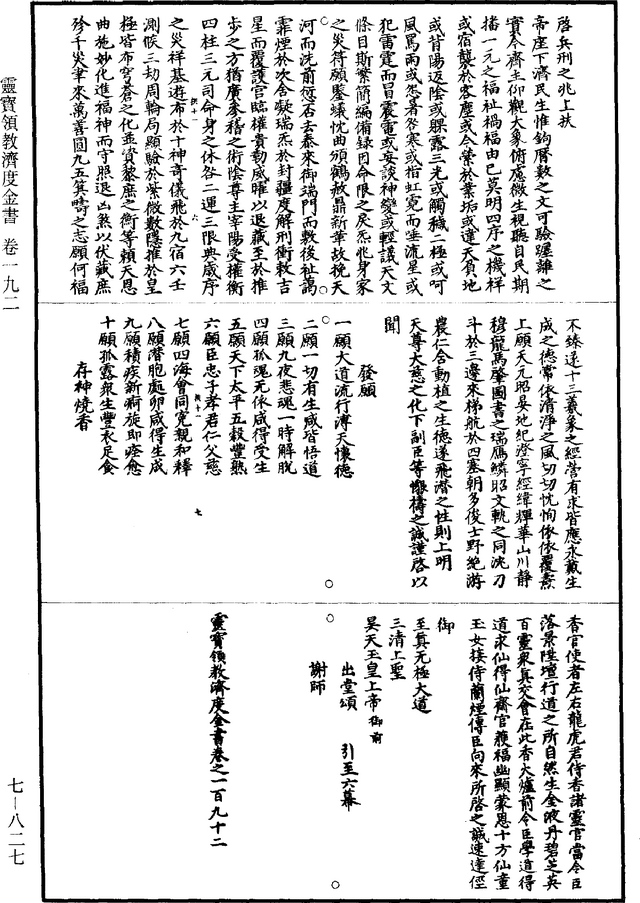 靈寶領教濟度金書 卷一九二
七—八二七
啓兵刑之兆上扶
帝座下濟民生惟鉤曆數之文可驗躔離之
實令齋主仰觀大象俯處微生視聽自民期
播一元之福祉禍福由己莫明四序之機祥
或宿襲於客塵或今縈於業垢或違天負地
或背陽返陰或躶露三光或觸穢二極或呵
風罵雨或怨暑咨寒或指虹霓而唾流星或
犯雷霆而冒震電或妄談神變或輕議天文
條目斯繁簡編備錄因命限之戾炁兆身家
之災符願鑒蟻忱曲頒鶴赦鼎新華故挽天
河而洗前愆否去泰來御端門而敷後祉蔼
霏煙於次舍凝瑞炁於封疆度解刑衝敕吉
星而覆護官臨權貴勅威曜以退藏至於推
步之方猶廣參稽之術陰尊主宰陽受權衡
四柱三元司命身之休咎二運三限典歲序
之災祥基遊布於十神奇儀飛於九宿六壬
測候三劫周輪局顯驗於紫微數隱推於皇
極皆布穹蒼之化並資黎庶之衡等賴天恩
曲施妙化進福神而守照退凶煞以伏藏庶
殄千災聿來萬善圓九五箕疇之志願何福
不臻遂十三羲象之經營有求皆應永戴生
成之德常依清淨之風切切忱恂依依覆燾
上願天元昭晏地紀澄寧經緯輝華山川靜
穆龍馬肇圖書之瑞鳫鱗昭文軌之同洗刀
斗於三邊來梯航於四塞朝多俊士野絶游
農仁含動植之生德遂飛潛之性則上明
天尊大慈之化下副臣等懇禱之誠謹啓以
聞
發願
一願大道流行溥天懷德
二願一切有生咸皆悟道
三願九夜悲魂一時解脫
四願孤魂无依咸得受生
五願天下太平五穀豐熟
六願臣忠子孝君仁父慈
七願四海會同冤親和釋
八願潛胞處卵咸得生成
九願積疾新痾旋卽痊愈
十願孤露衆生豐衣足食
存神燒香
香官使者左右龍虎君侍香諸靈官當令臣
落景陞壇行道之所自然生金液丹碧芝英
百靈衆真交會在此香火爐前令臣學道得
道求仙得仙齋官獲福幽顯蒙恩十方仙童
玉女接侍蘭煙傳臣向來所啓之誠速達徑
御
至真无極大道
三清上聖
昊天玉皇上帝御前
出堂頌 引至六幕
謝師
靈寶領教濟度金書卷之一百九十二